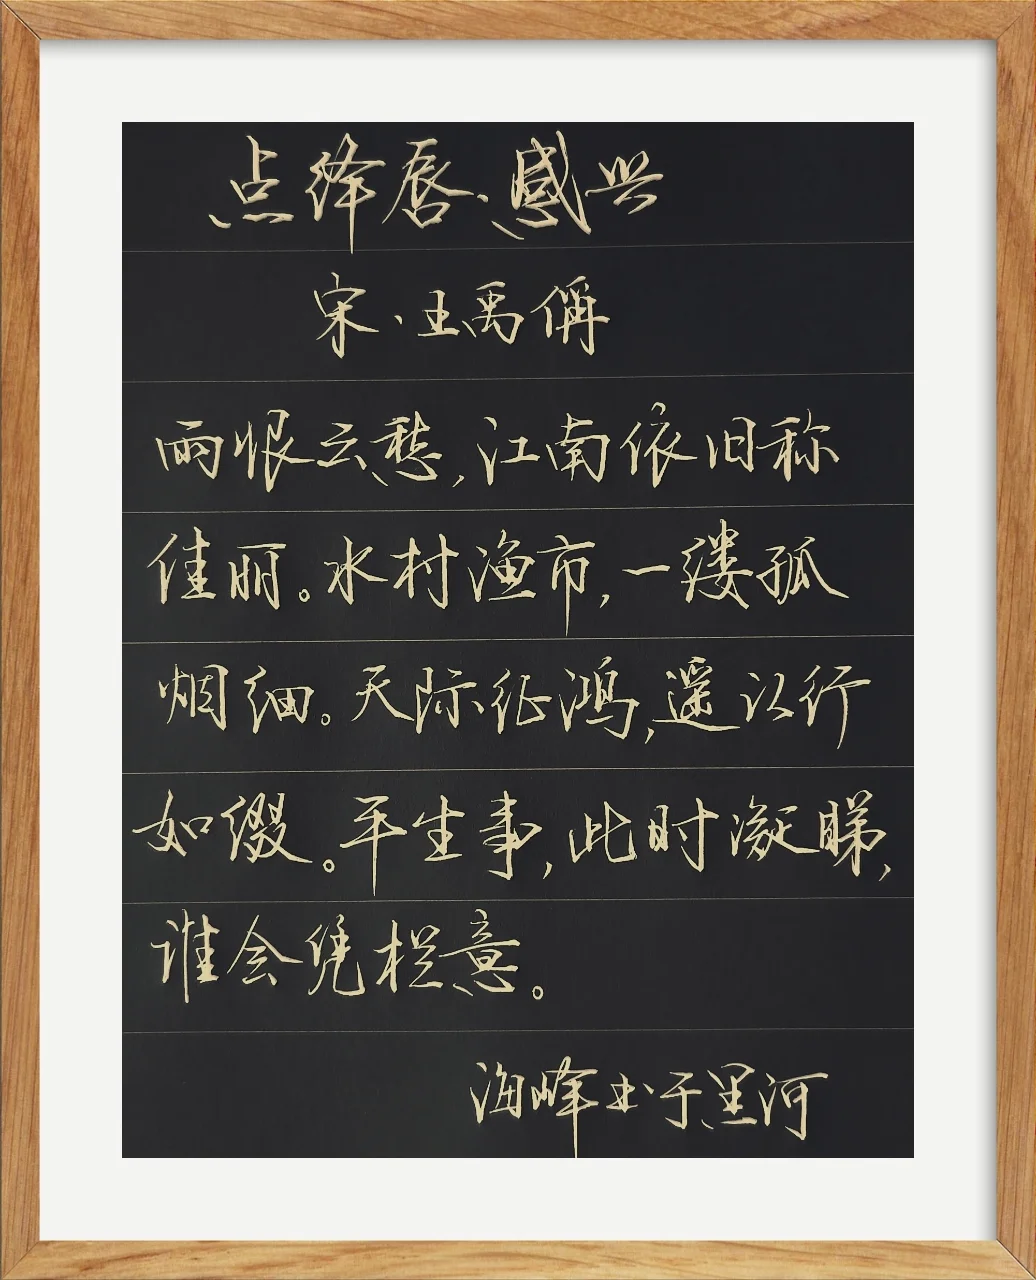 点绛唇·感兴
宋·王禹偁
雨恨云愁,江南依旧称
佳丽。水村渔市,一缕孤
烟细。天际征鸿,遥认行
如缀。平生事,此时凝睇,
谁会凭栏意。
海峰书于黑河